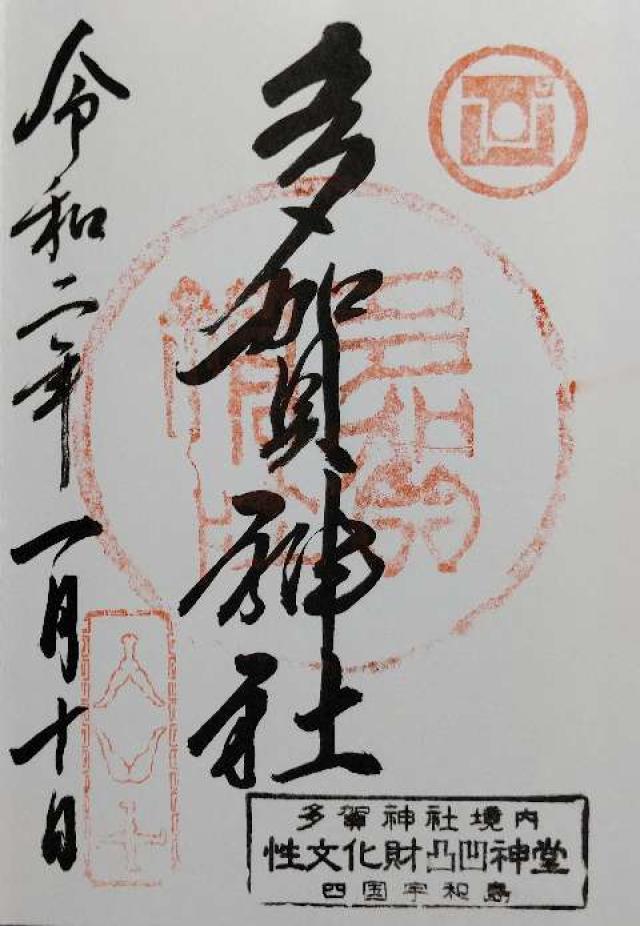 多賀神社
令和二年一月十日
多賀神社境内
性文化財凸凹神堂
四国宇和島